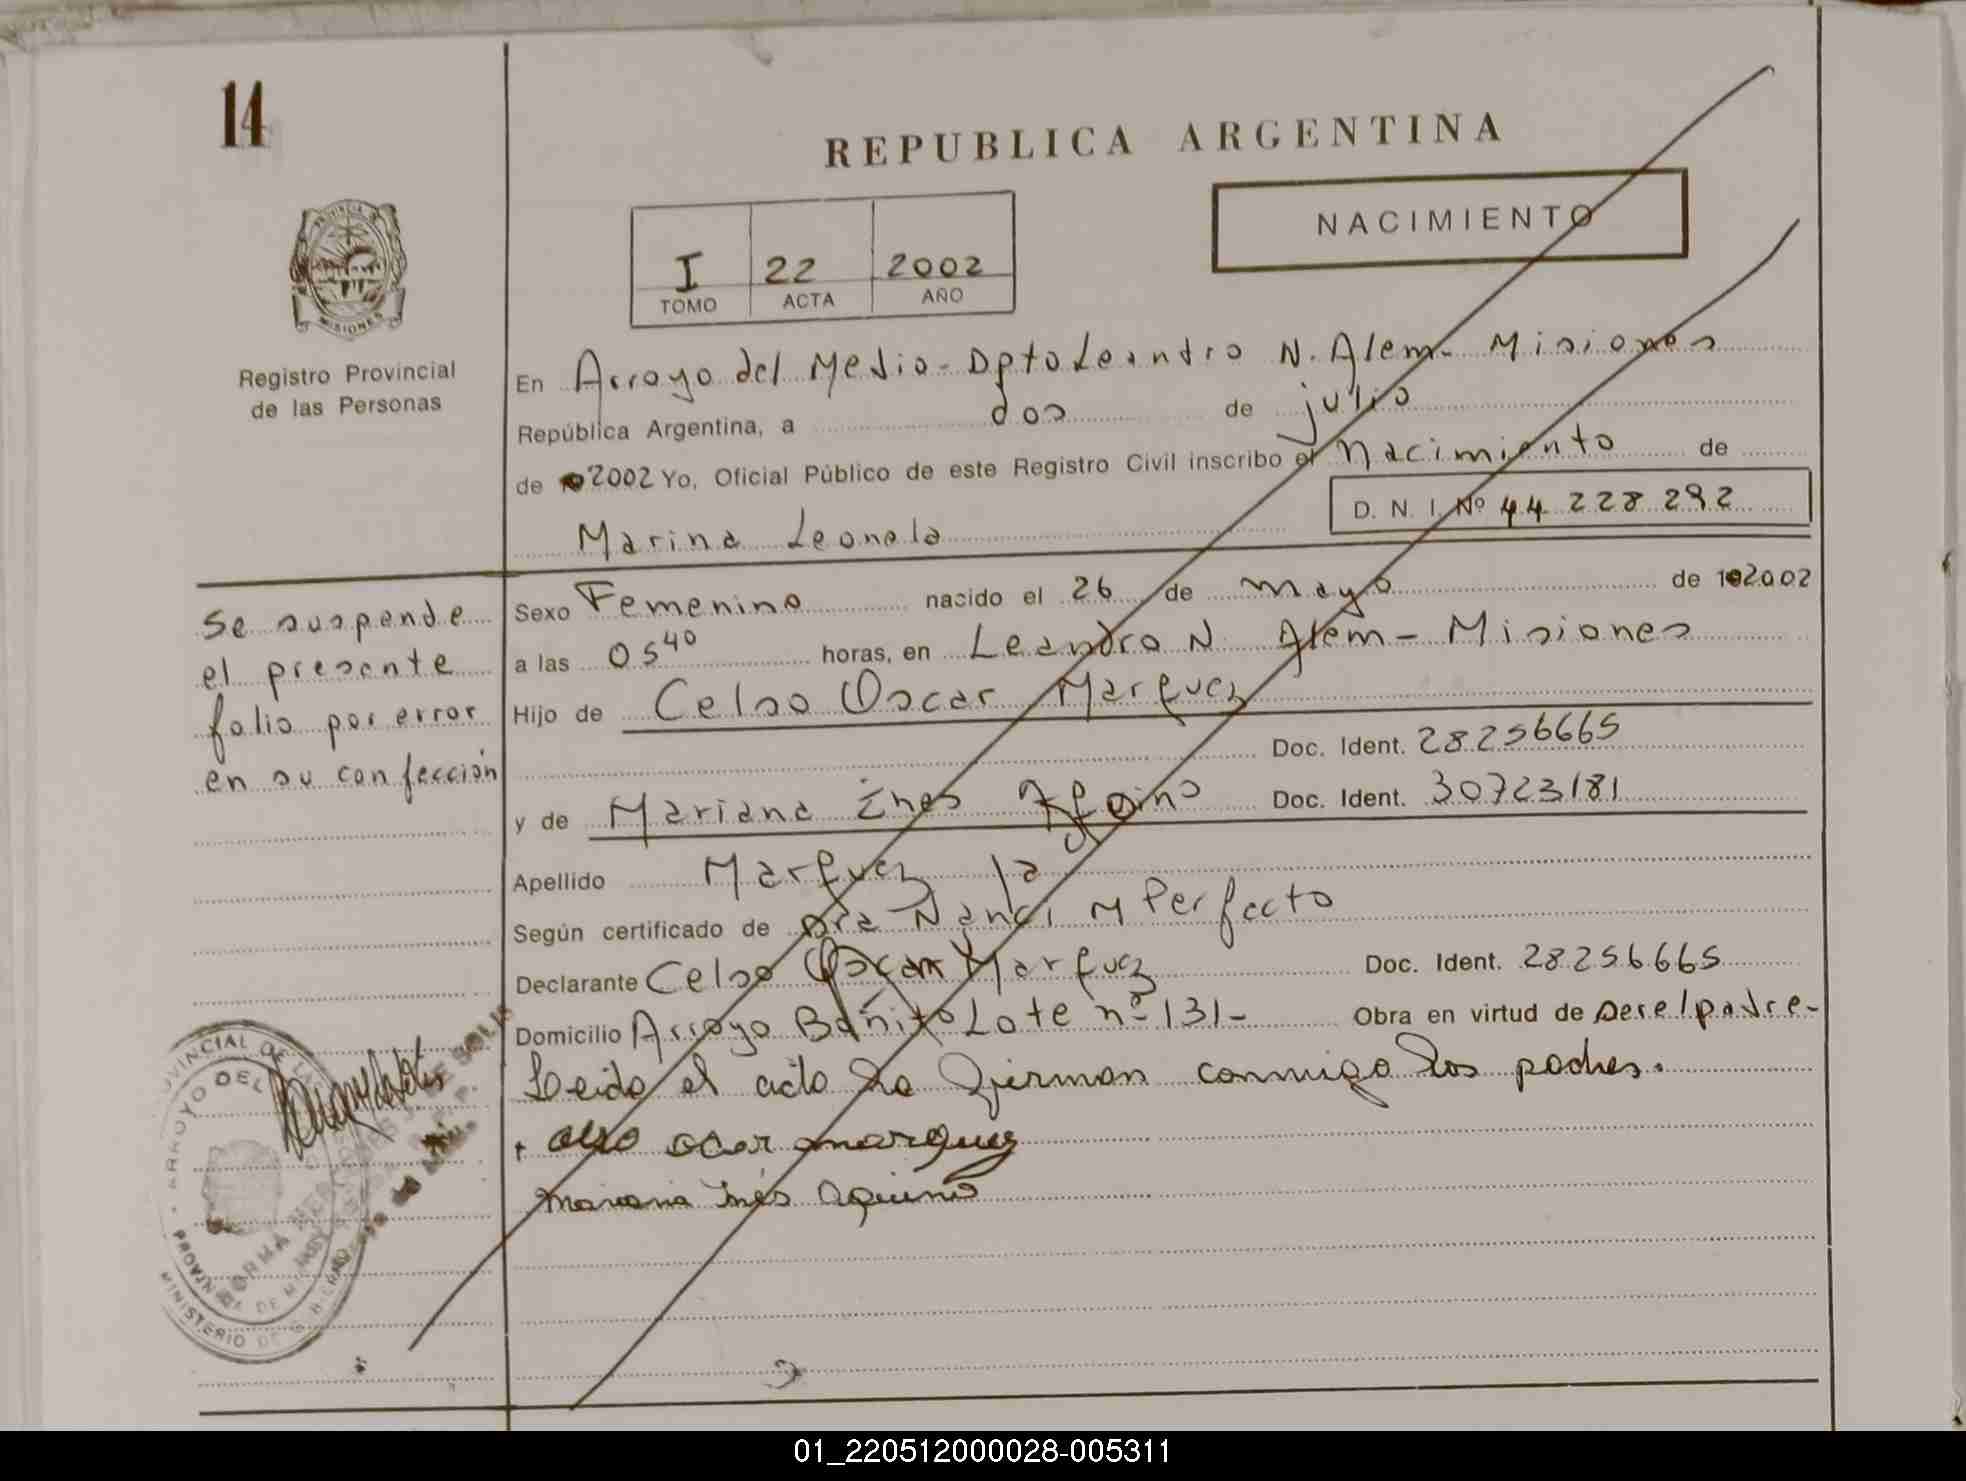 14
REPUBLICA ARGENTINA
NACIMIENTO
I 22 2002
TOMO ACTA AÑO
PROVINCIA DE
MISIONES
Registro Provincial
de las Personas
En Arroyo del Medio - Dpto Leandro N. Alem - Misiones
República Argentina, a dos de julio
de 2002 Yo, Oficial Público de este Registro Civil inscribo el Nacimiento de
D. N. I. Nº 44 228 292
Marina Leonela
Sexo Femenino nacido el 26 de mayo de 2002
a las 05 40 horas, en Leandro N. Alem - Misiones
Hijo de Celso Oscar Marquez
Doc. Ident. 28256665
y de Mariana Ines Aquino Doc. Ident. 30723181
Apellido Marquez la
Según certificado de Dra Nanci M Perfecto
Declarante Celso Oscar Marquez Doc. Ident. 28256665
Domicilio Arroyo Bonito Lote nº 131- Obra en virtud de ser el padre-
Leida el acta la firman conmigo los padres.
celso ocar marquez
Mariana Inés Aquino
Se suspende
el presente
folio por error
en su confección
ARROYO DEL
PROVINCIA DE
MINISTERIO DE
01_220512000028-005311